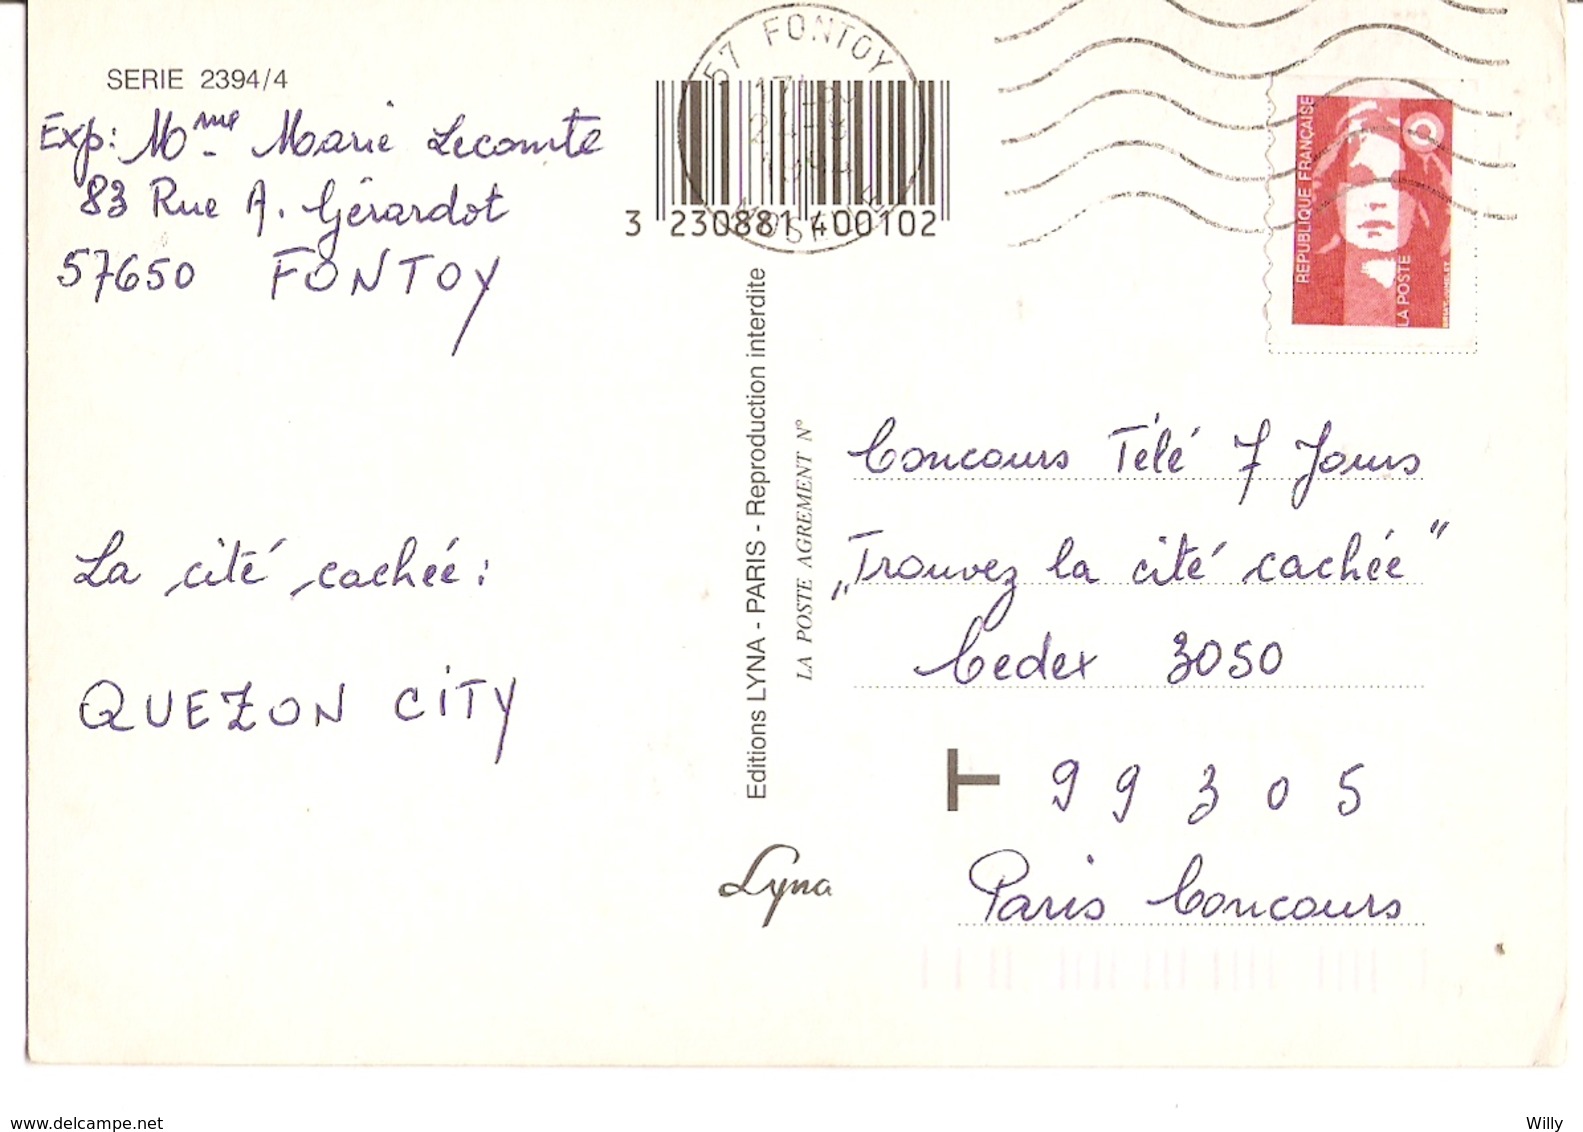 SERIE 2394/4
Exp: Mme Marie Lecomte
83 Rue A. Gérardot
57650 FONTOY
La cité cachée :
QUEZON CITY
57 FONTOY
3 230881 400102
Editions LYNA - PARIS - Reproduction interdite
LA POSTE AGREMENT N°
Lyna
REPUBLIQUE FRANÇAISE
LA POSTE
Concours Télé 7 Jours
„Trouvez la cité cachée"
Cedex 3050
T 99305
Paris Concours
www.delcampe.net
Willy